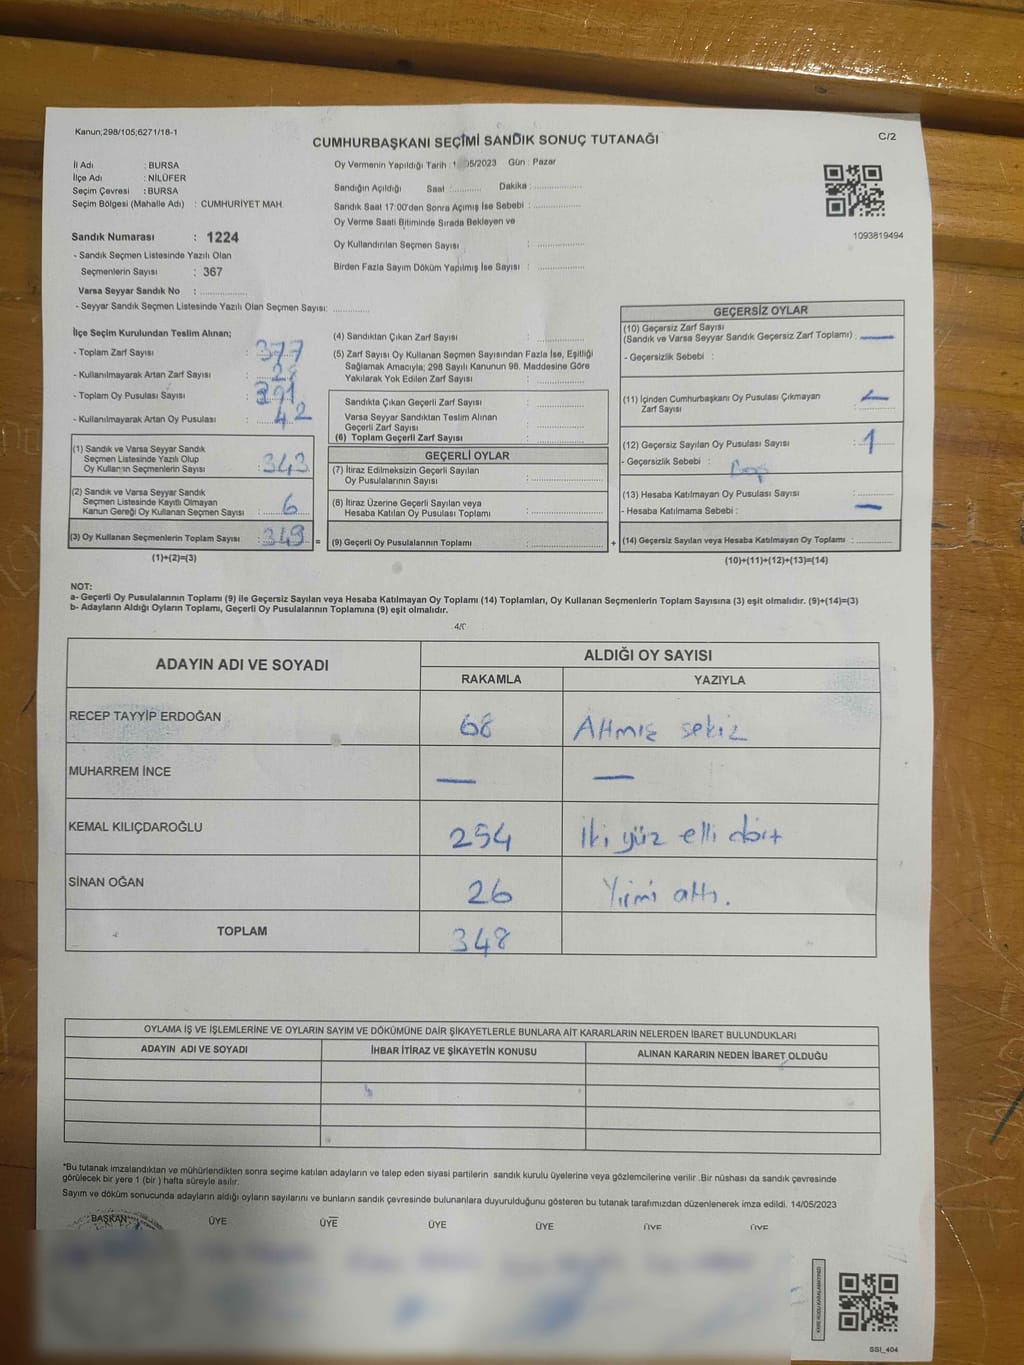 Kanun;298/105;6271/18-1
C/2
CUMHURBAŞKANI SEÇİMİ SANDIK SONUÇ TUTANAĞI
İl Adı : BURSA
İlçe Adı : NİLÜFER
Seçim Çevresi : BURSA
Seçim Bölgesi (Mahalle Adı) : CUMHURİYET MAH.
Oy Vermenin Yapıldığı Tarih : 05/2023 Gün : Pazar
Sandığın Açıldığı Saat :........... Dakika :................
Sandık Saat 17:00'den Sonra Açımış İse Sebebi :................
Oy Verme Saati Bitiminde Sırada Bekleyen ve
Oy Kullandırılan Seçmen Sayısı :................
Birden Fazla Sayım Döküm Yapılmış İse Sayısı :................
1093819494
Sandık Numarası : 1224
- Sandık Seçmen Listesinde Yazılı Olan
Seçmenlerin Sayısı : 367
Varsa Seyyar Sandık No :................
- Seyyar Sandık Seçmen Listesinde Yazılı Olan Seçmen Sayısı:............
İlçe Seçim Kurulundan Teslim Alınan;
- Toplam Zarf Sayısı : 377
- Kullanılmayarak Artan Zarf Sayısı :
- Toplam Oy Pusulası Sayısı : 391
- Kullanılmayarak Artan Oy Pusulası : 42
(1) Sandık ve Varsa Seyyar Sandık
Seçmen Listesinde Yazılı Olup
Oy Kullanan Seçmenlerin Sayısı : 343
(2) Sandık ve Varsa Seyyar Sandık
Seçmen Listesinde Kayıtlı Olmayan
Kanun Gereği Oy Kullanan Seçmen Sayısı : 6
(3) Oy Kullanan Seçmenlerin Toplam Sayısı : 349 =
(1)+(2)=(3)
(4) Sandıktan Çıkan Zarf Sayısı :................
(5) Zarf Sayısı Oy Kullanan Seçmen Sayısından Fazla İse, Eşitliği
Sağlamak Amacıyla; 298 Sayılı Kanunun 98. Maddesine Göre
Yakılarak Yok Edilen Zarf Sayısı :................
Sandıkta Çıkan Geçerli Zarf Sayısı :................
Varsa Seyyar Sandıktan Teslim Alınan
Geçerli Zarf Sayısı :................
(6) Toplam Geçerli Zarf Sayısı :................
GEÇERLİ OYLAR
(7) İtiraz Edilmeksizin Geçerli Sayılan
Oy Pusulalarının Sayısı :................
(8) İtiraz Üzerine Geçerli Sayılan veya
Hesaba Katılan Oy Pusulası Toplamı :................
(9) Geçerli Oy Pusulalarının Toplamı :................ +
GEÇERSİZ OYLAR
(10) Geçersiz Zarf Sayısı
(Sandık ve Varsa Seyyar Sandık Geçersiz Zarf Toplamı) : —
- Geçersizlik Sebebi :
(11) İçinden Cumhurbaşkanı Oy Pusulası Çıkmayan
Zarf Sayısı : —
(12) Geçersiz Sayılan Oy Pusulası Sayısı : 1
- Geçersizlik Sebebi : Boş
(13) Hesaba Katılmayan Oy Pusulası Sayısı :............
- Hesaba Katılmama Sebebi : —
(14) Geçersiz Sayılan veya Hesaba Katılmayan Oy Toplamı :............
(10)+(11)+(12)+(13)=(14)
NOT:
a- Geçerli Oy Pusulalarının Toplamı (9) ile Geçersiz Sayılan veya Hesaba Katılmayan Oy Toplamı (14) Toplamları, Oy Kullanan Seçmenlerin Toplam Sayısına (3) eşit olmalıdır. (9)+(14)=(3)
b- Adayların Aldığı Oyların Toplamı, Geçerli Oy Pusulalarının Toplamına (9) eşit olmalıdır.
ADAYIN ADI VE SOYADI
ALDIĞI OY SAYISI
RAKAMLA YAZIYLA
RECEP TAYYİP ERDOĞAN 68 Altmış sekiz
MUHARREM İNCE — —
KEMAL KILIÇDAROĞLU 254 İki yüz elli dört
SİNAN OĞAN 26 Yirmi altı.
TOPLAM 348
OYLAMA İŞ VE İŞLEMLERİNE VE OYLARIN SAYIM VE DÖKÜMÜNE DAİR ŞİKAYETLERLE BUNLARA AİT KARARLARIN NELERDEN İBARET BULUNDUKLARI
ADAYIN ADI VE SOYADI İHBAR İTİRAZ VE ŞİKAYETİN KONUSU ALINAN KARARIN NEDEN İBARET OLDUĞU
*Bu tutanak imzalandıktan ve mühürlendikten sonra seçime katılan adayların ve talep eden siyasi partilerin sandık kurulu üyelerine veya gözlemcilerine verilir .Bir nüshası da sandık çevresinde
görülecek bir yere 1 (bir ) hafta süreyle asılır.
Sayım ve döküm sonucunda adayların aldığı oyların sayılarını ve bunların sandık çevresinde bulunanlara duyurulduğunu gösteren bu tutanak tarafımızdan düzenlenerek imza edildi. 14/05/2023
BAŞKAN ÜYE ÜYE ÜYE ÜYE ÜYE ÜYE
SSI_404